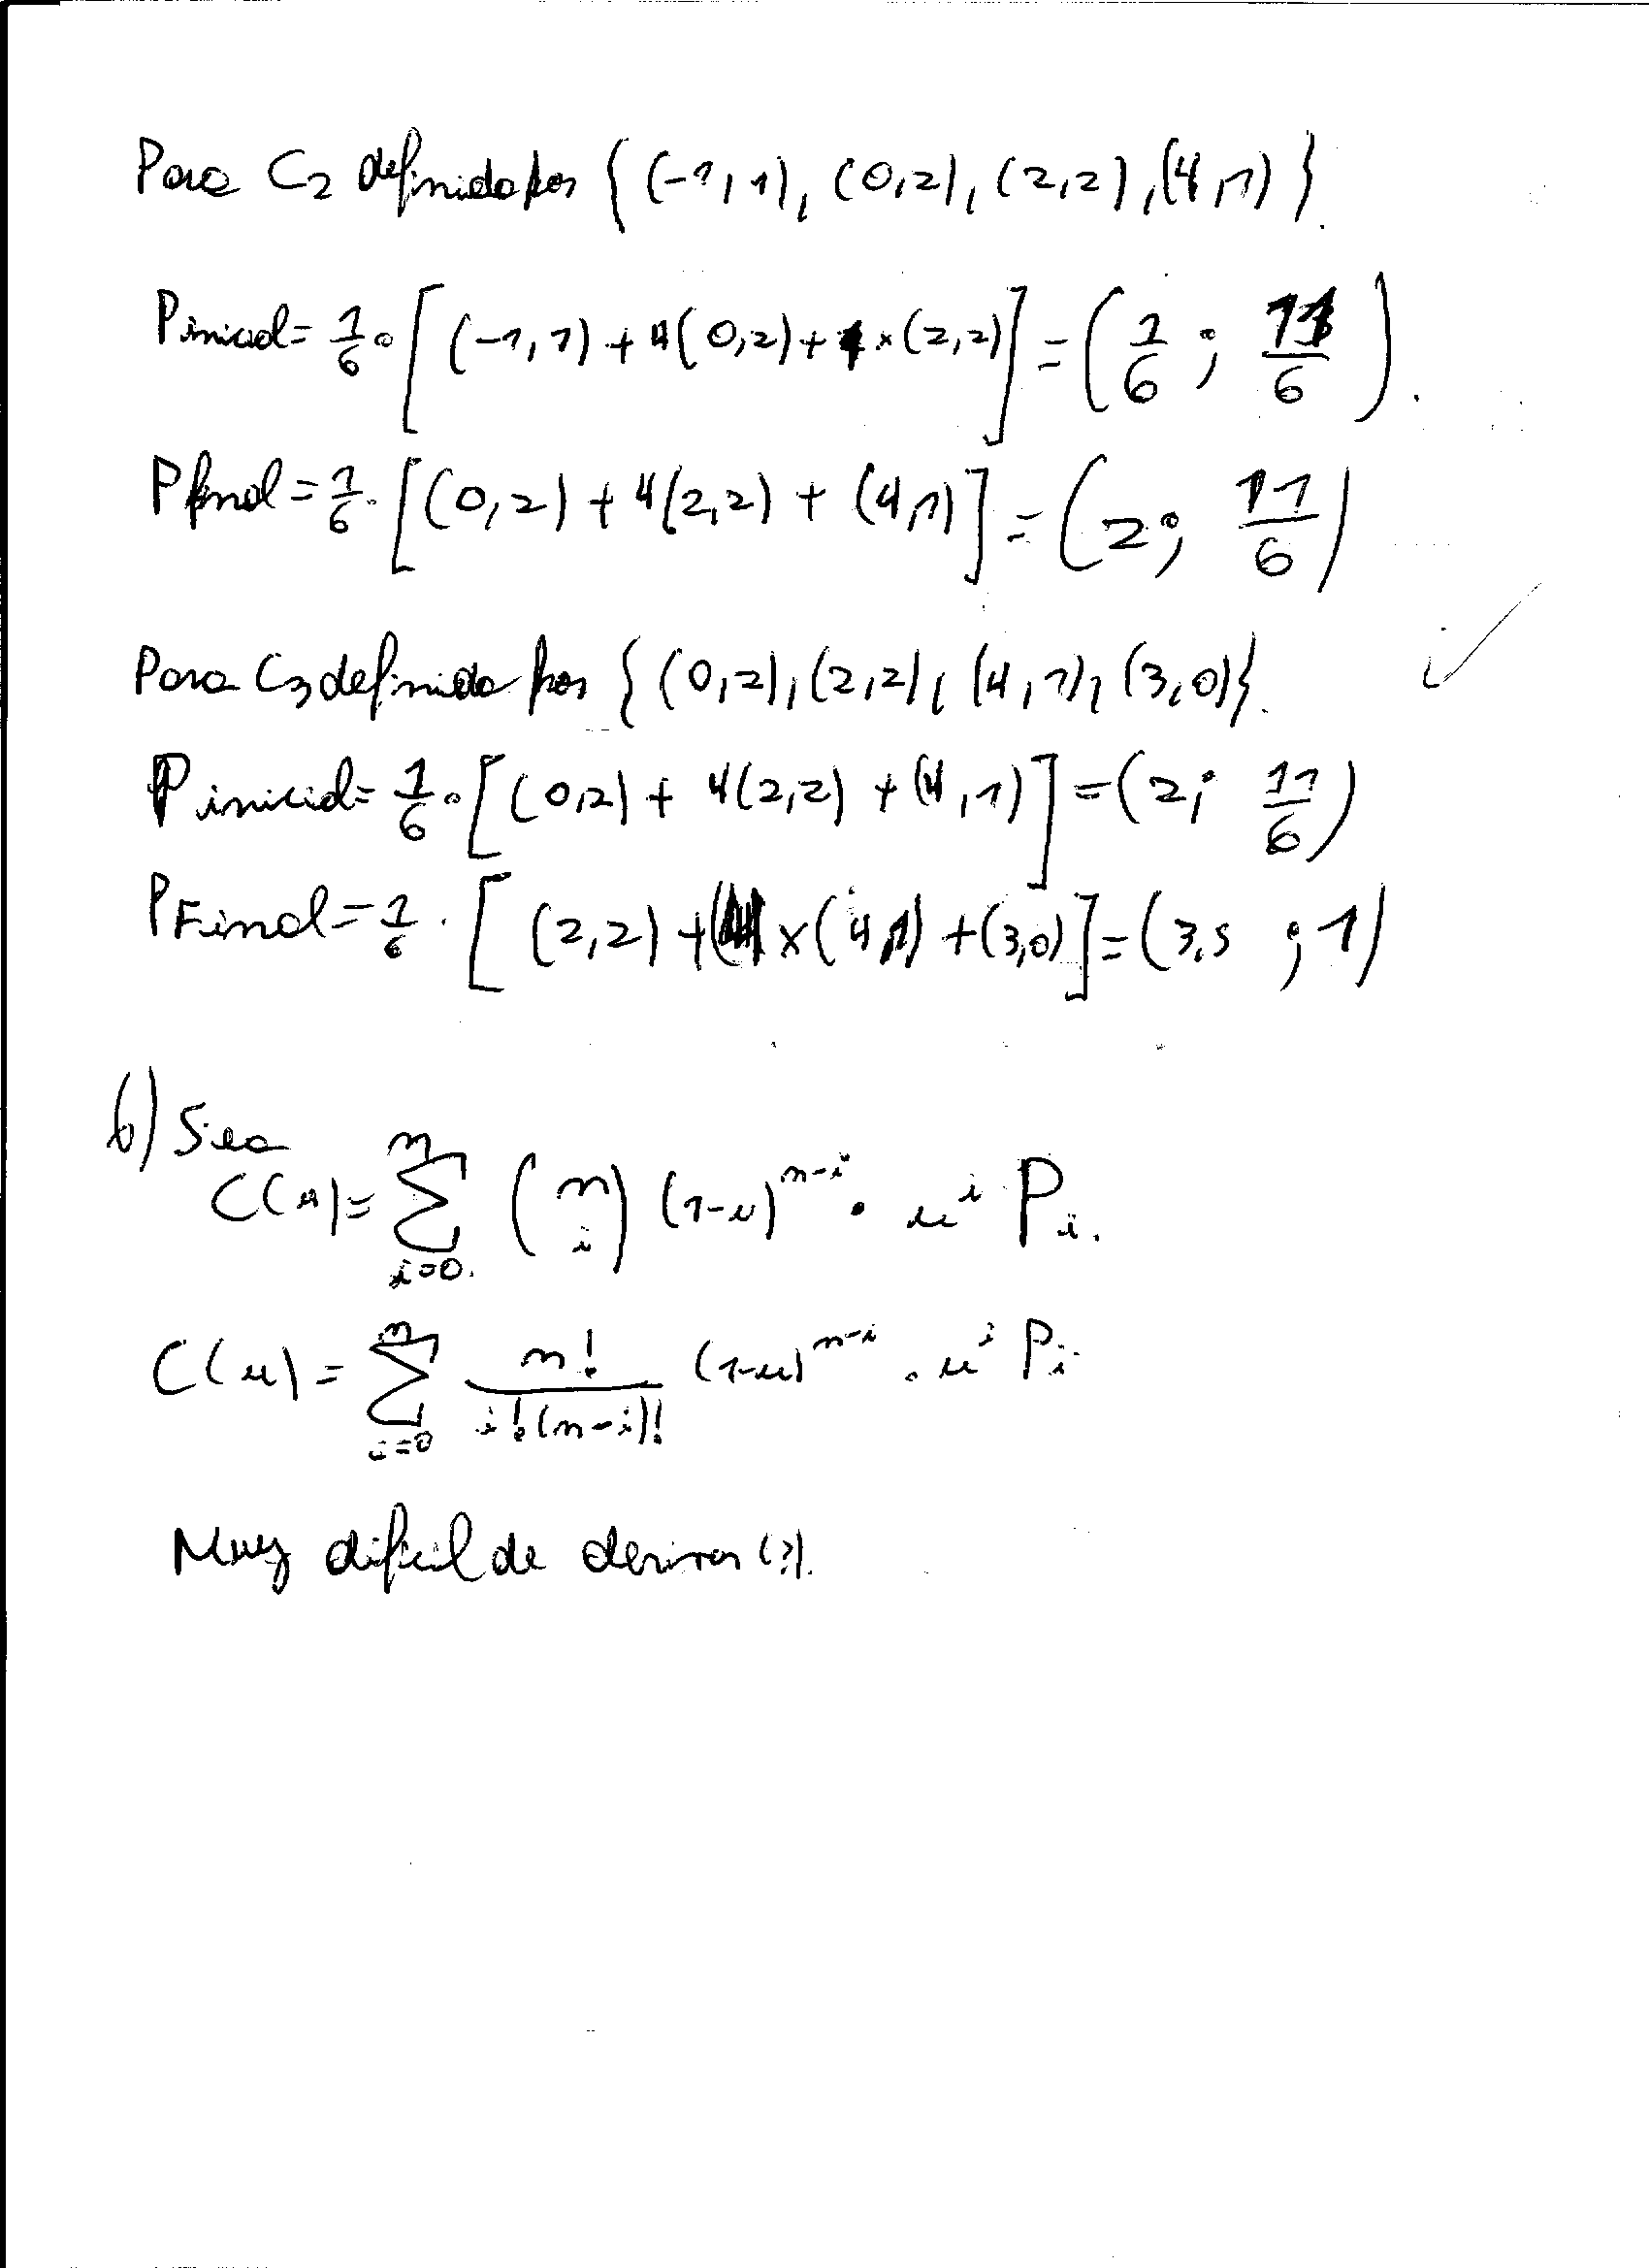 Para C2 definida por { (-1,1), (0,2), (2,2), (4,1) }.
Pinicial = 1/6 · [ (-1,1) + 4(0,2) + 1 × (2,2) ] = ( 1/6 ; 11/6 ).
Pfinal = 1/6 · [ (0,2) + 4(2,2) + (4,1) ] = ( 2 ; 11/6 )
Para C3 definida por { (0,2), (2,2), (4,1), (3,0) }.
Pinicial = 1/6 · [ (0,2) + 4(2,2) + (4,1) ] = ( 2 ; 11/6 )
PFinal = 1/6 · [ (2,2) + 4 × (4,1) + (3,0) ] = ( 3,5 ; 1 )
b) Sea
C(u) = Σ_{i=0}^{n} (n i) (1-u)^{n-i} · u^i Pi.
C(u) = Σ_{i=0}^{n} n! / i!(n-i)! (1-u)^{n-i} · u^i Pi
Muy dificil de derivar (?).